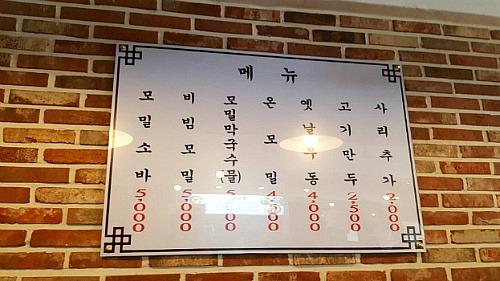 메뉴
모밀소바 5,000
비빔모밀 5,000
모밀막국수(물) 5,000
온모밀 4,500
옛날우동 4,000
고기만두 2,500
사리추가 2,000